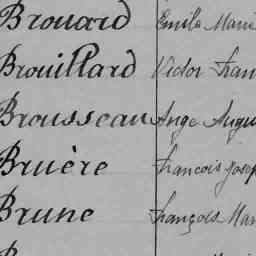 Brouard Emile Marie
Brouillard Victor Fran
Brousseau Ange Augu
Bruère Francois Josep
Brune François Mar